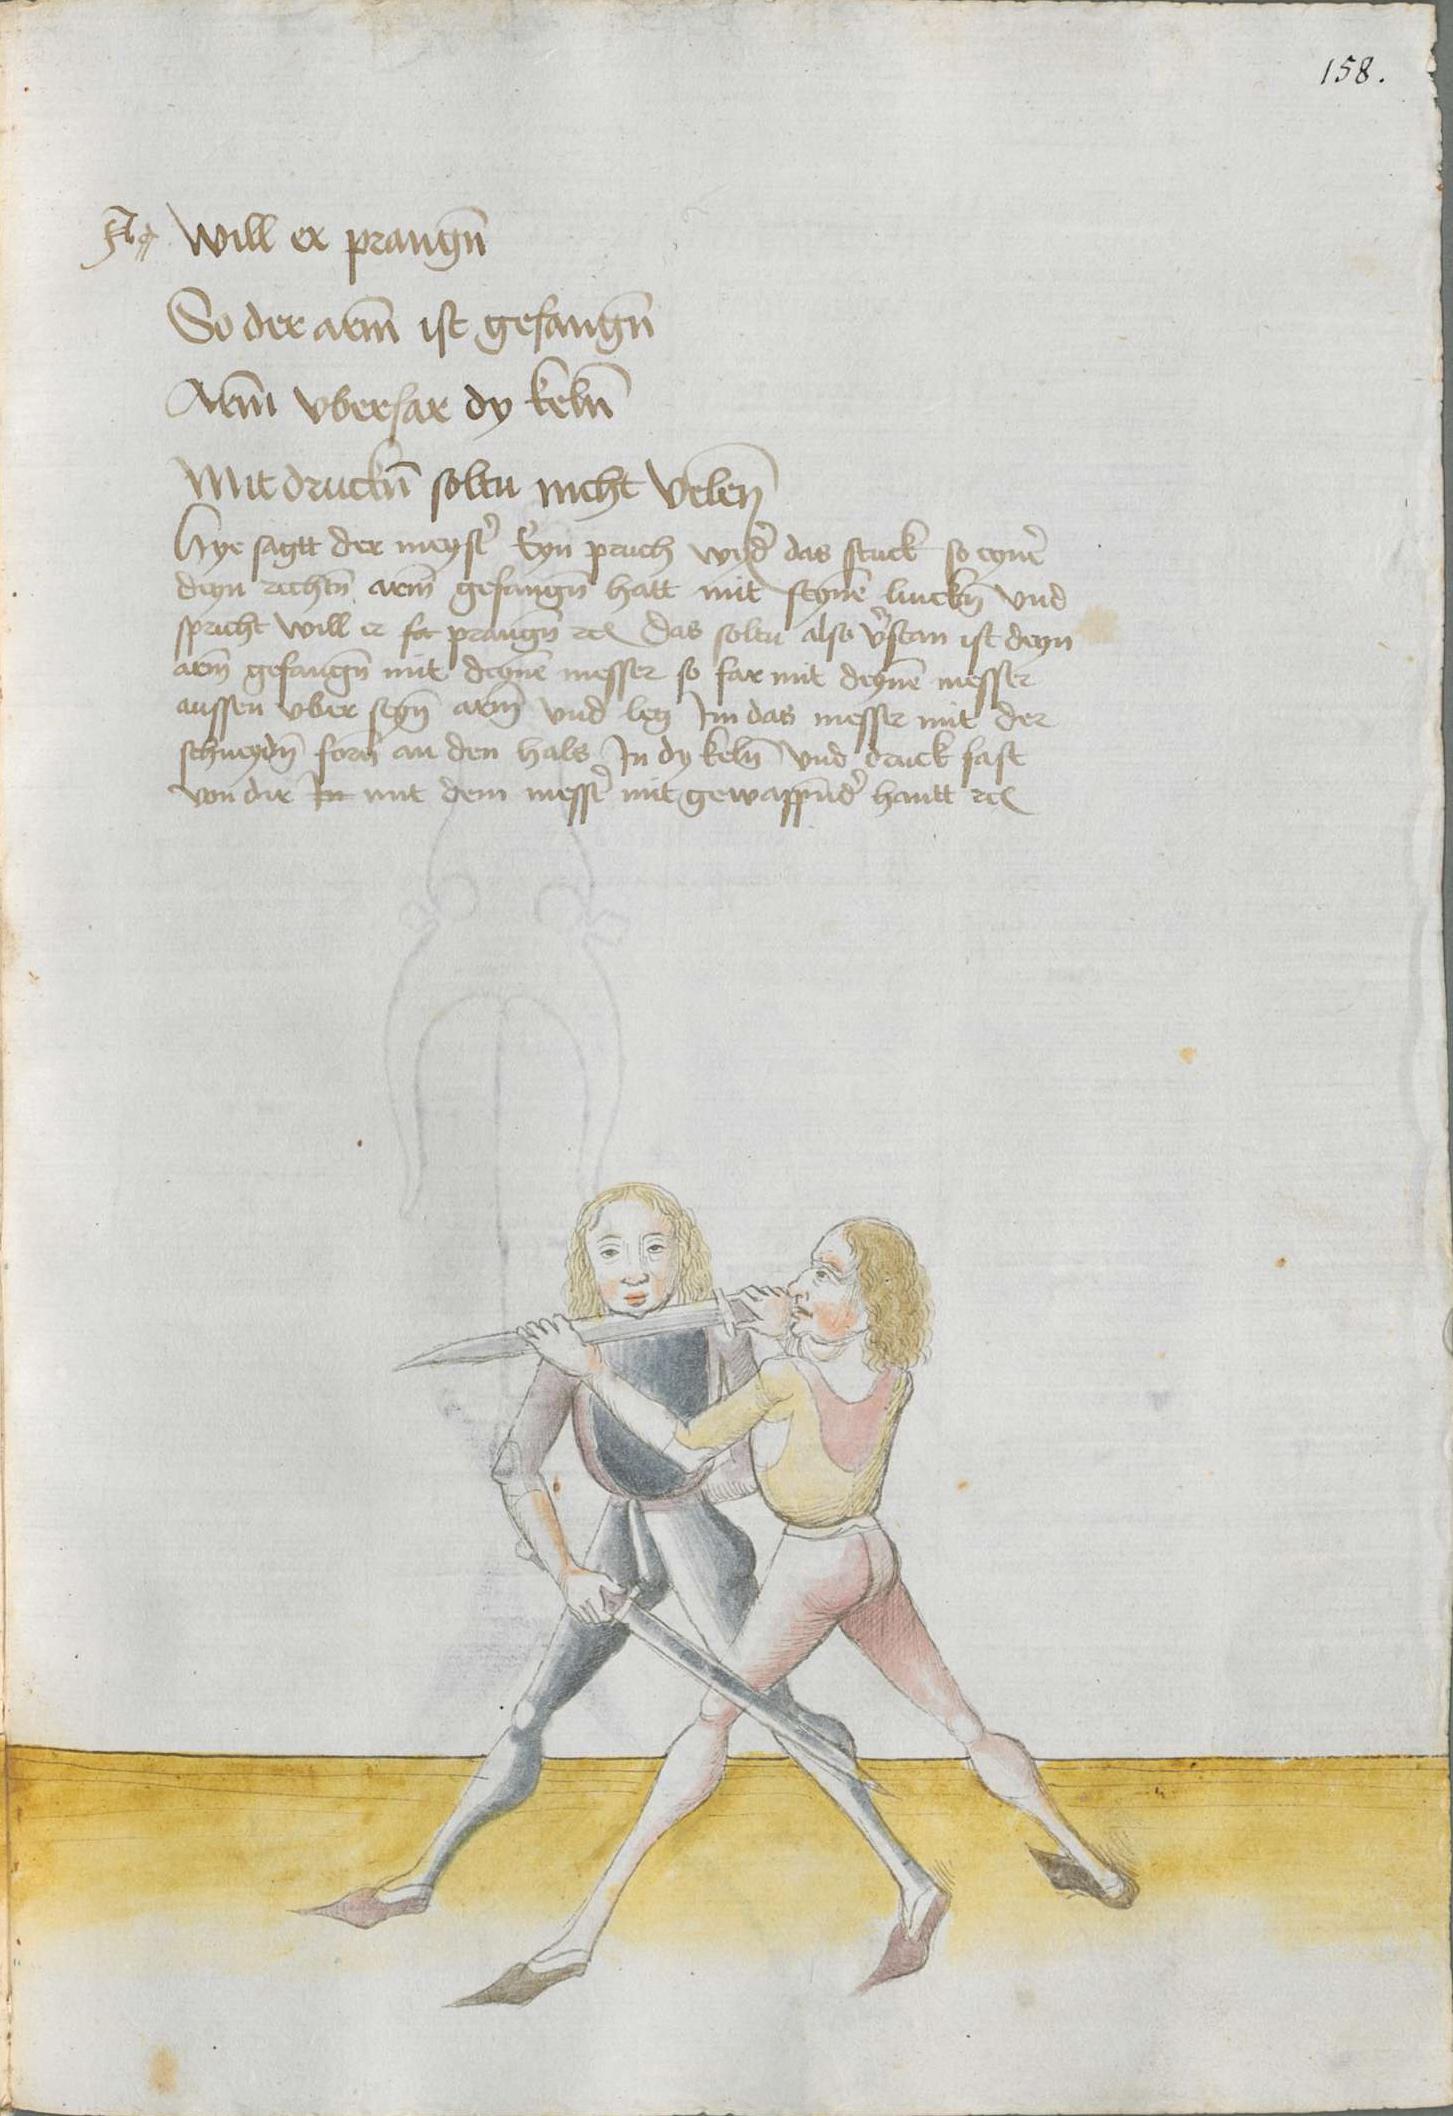 158.
Will er prangñ
So der arm̄ ist gefangñ
Arm̄ vberfar dy kelñ
Mit druckñ soltu nicht velen
Hye sagtt der meyst̾ Eyn pruch wyd̾ das stuck so eyne̾
deyn rechtñ arm̄ gefangñ hatt mit seynē linckñ vnd
spricht will er prangñ rc̄ das soltu also v̾stan ist deyn
arm̄ gefangñ mit deynē messer so far mit deynē messer
aussen vber seyñ arm̄ vnd leg Im das messer mit der
schneydñ forñ an den hals In dy kelñ vnd druck fast
von dir mit dem mess̾ mit gewappend̾ hantt rc̄